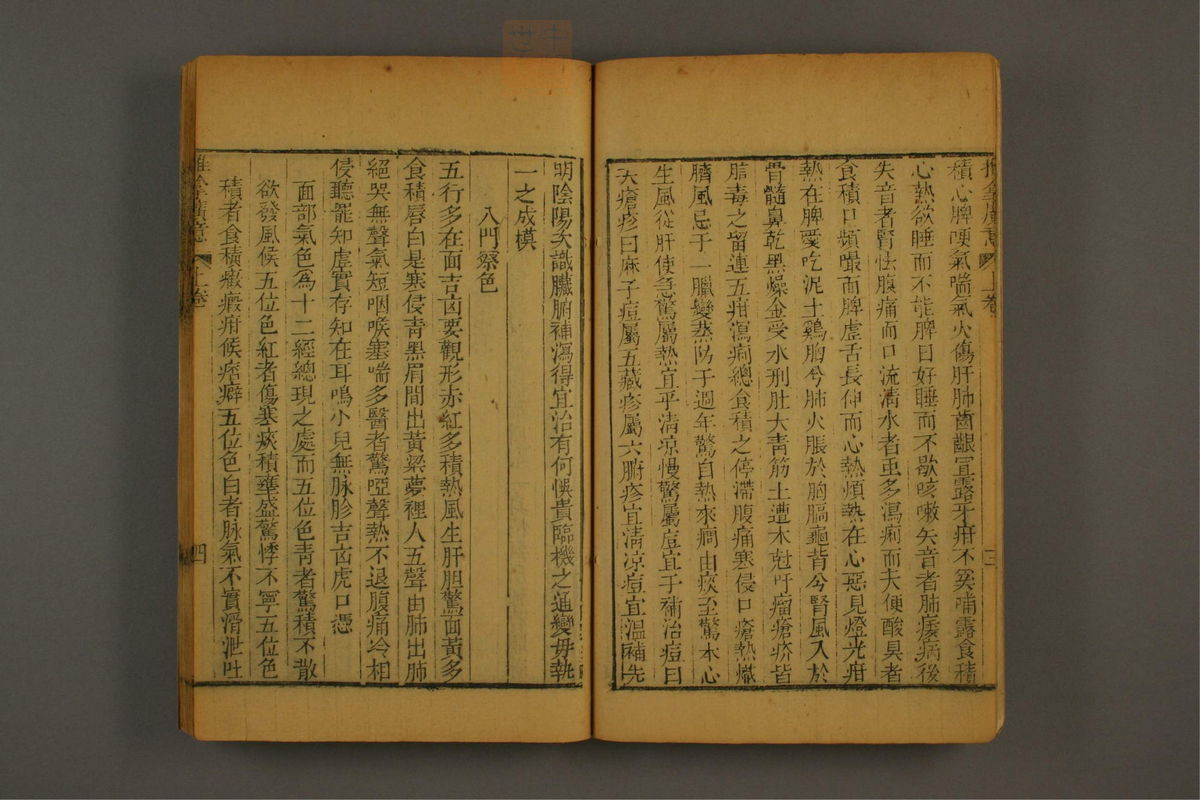 積心脾哽氣喘氣火傷肝肺齒齦宣露牙疳不笑哺露食積
心熱欲睡而不能脾日好睡而不歇咳嗽失音者肺痿病後
失音者腎怯腹痛而口流清水者虫多瀉痢而大便酸臭者
食積口頻嘬而脾虛舌長伸而心熱煩熱在心惡見燈光疳
熱在脾愛吃泥土鷄胸兮肺火脹於胸膈龜背兮腎風入於
骨髓鼻乾黑燥金受水刑肚大青筋土遭木尅吁瘤瘡疥皆
胎毒之留連五疳瀉痢總食積之停滯腹痛寒侵口瘡熱熾
臍風忌于一臘變蒸防于週年驚自熱來癎由痰至驚本心
生風從肝使急驚屬熱宜乎清凉慢驚屬虛宜于補治痘曰
大瘡疹曰麻子痘屬五藏疹屬六腑疹宜清凉痘宜溫補先
推拿廣意 上卷 三
明陰陽次識臟腑補瀉得宜治有何悞貴臨機之通變毋執
一之成模
八門察色
五行多在面吉凶要觀形赤紅多積熱風生肝胆驚面黃多
食積唇白是寒侵青黑眉間出黃梁夢裡人五聲由肺出肺
絕哭無聲氣短咽喉塞喘多醫者驚啞聲熱不退腹痛冷相
侵聽罷知虛實存知在耳鳴小兒無脉胗吉凶虎口憑
面部氣色爲十二經總現之處而五位色青者驚積不散
欲發風候五位色紅者傷寒痰積壅盛驚悸不寧五位色
積者食積癥瘕疳候痞癖五位色白者脉氣不實滑泄吐
推拿廣意 上卷 四